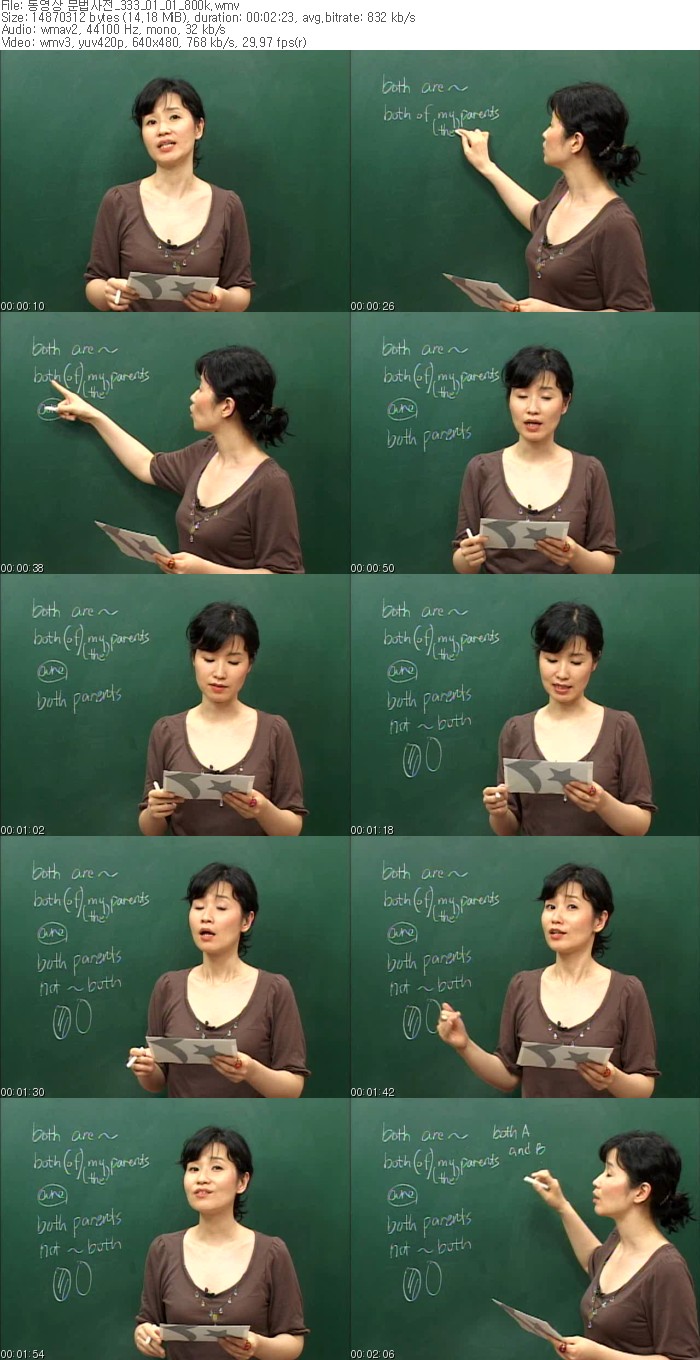 File: 동영상 문법사전_333_01_01_800k.wmv
Size: 14870312 bytes (14.18 MiB), duration: 00:02:23, avg.bitrate: 832 kb/s
Audio: wmav2, 44100 Hz, mono, 32 kb/s
Video: wmv3, yuv420p, 640x480, 768 kb/s, 29.97 fps(r)
00:00:10
both are ~
both of my parents
(the)
00:00:26
both are ~
both (of) my parents
(the)
00:00:38
both are ~
both (of) my parents
(the)
are
both parents
00:00:50
both are ~
both (of) my parents
(the)
are
both parents
00:01:02
both are ~
both (of) my parents
(the)
are
both parents
not ~ both
00:01:18
both are ~
both (of) my parents
(the)
are
both parents
not ~ both
00:01:30
both are ~
both (of) my parents
(the)
are
both parents
not ~ both
00:01:42
both are ~
both (of) my parents
(the)
are
both parents
not ~ both
00:01:54
both are ~
both (of) my parents
(the)
are
both parents
not ~ both
both A
and B
00:02:06